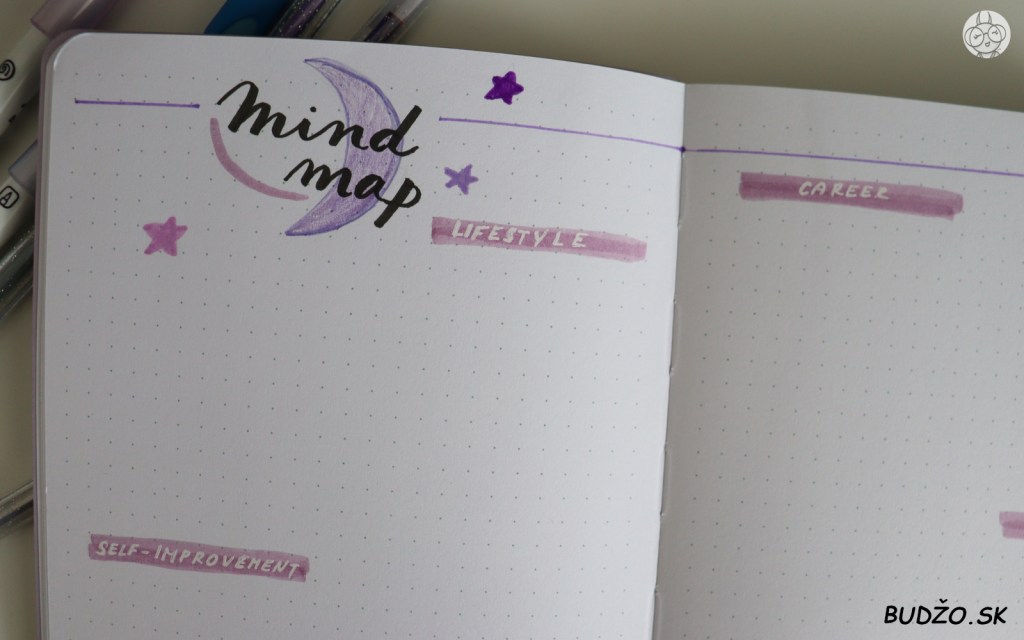 mind
map
LIFESTYLE
CAREER
SELF-IMPROVEMENT
BUDŽO.SK